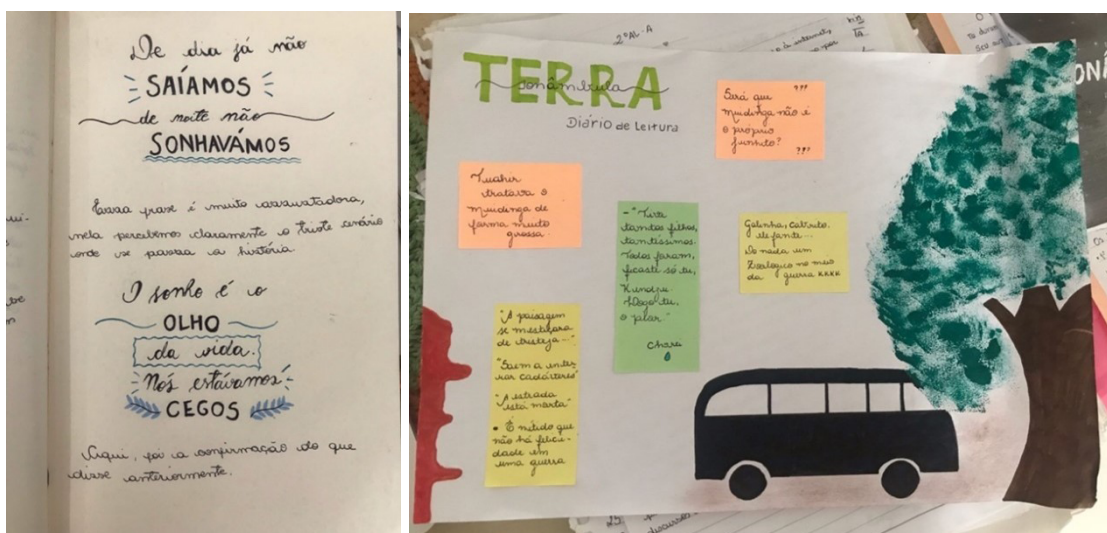 De dia já não
SAÍAMOS
de noite não
SONHAVÁMOS
Essa frase é muito assustadora,
nela percebemos claramente o triste cenário
onde se passa a história.
O sonho é o
OLHO
da vida.
Nós estávamos
CEGOS
Aqui, foi a confirmação do que
disse anteriormente.
2º AL. A
TERRA
sonâmbula
Diário de Leitura
Será que ???
muidinga não é
o próprio
junhito?
???
Tuahir
tratava o
muidinga de
forma muito
grossa.
- "Tive
tantos filhos,
tantíssimos.
Todos foram,
ficaste só tu,
Chora
Galinha, cabrito,
elefante...
Do nada um
Zoológico no meio
da guerra kkkk
"A paisagem
se mestiçara
de tristeza..."
"Saem a enter
rar cadáveres"
"A estrada
está morta"
• É nítido que
não há felici-
dade em
uma guerra